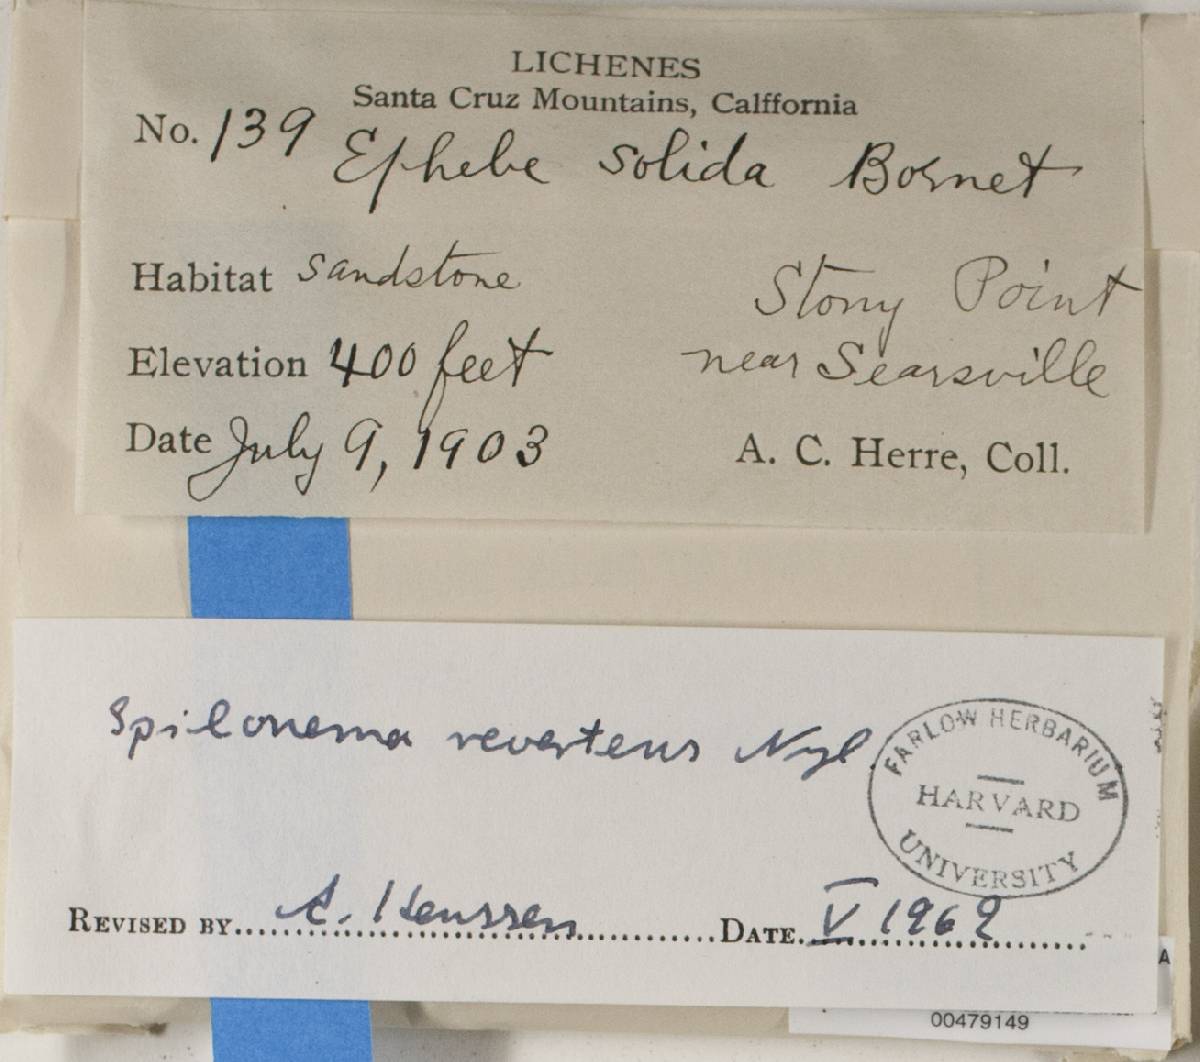 LICHENES
Santa Cruz Mountains, Calffornia
No. 139 Ephebe solida Bornet
Habitat sandstone
Stony Point
Elevation 400 feet
near Searsville
Date July 9, 1903
A. C. Herre, Coll.
Spilonema revertens Nyl.
FARLOW HERBARIUM
HARVARD
UNIVERSITY
REVISED BY A. Henssen DATE V 1969
A
00479149